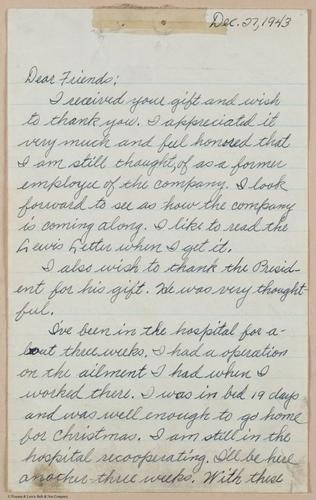 Dec. 27, 1943
Dear Friends;
I received your gift and wish
to thank you. I appreciated it
very much and feel honored that
I am still thought, of as a former
employee of the company. I look
forward to see as how the company
is coming along. I like to read the
Lewis Letter when I get it.
I also wish to thank the Presid-
ent for his gift. He was very thought-
ful.
I've been in the hospital for a-
bout three weeks. I had a operation
on the ailment I had when I
worked there. I was in bed 19 days
and was well enough to go home
for Christmas. I am still in the
hospital recooperating. I'll be here
another three weeks. With these